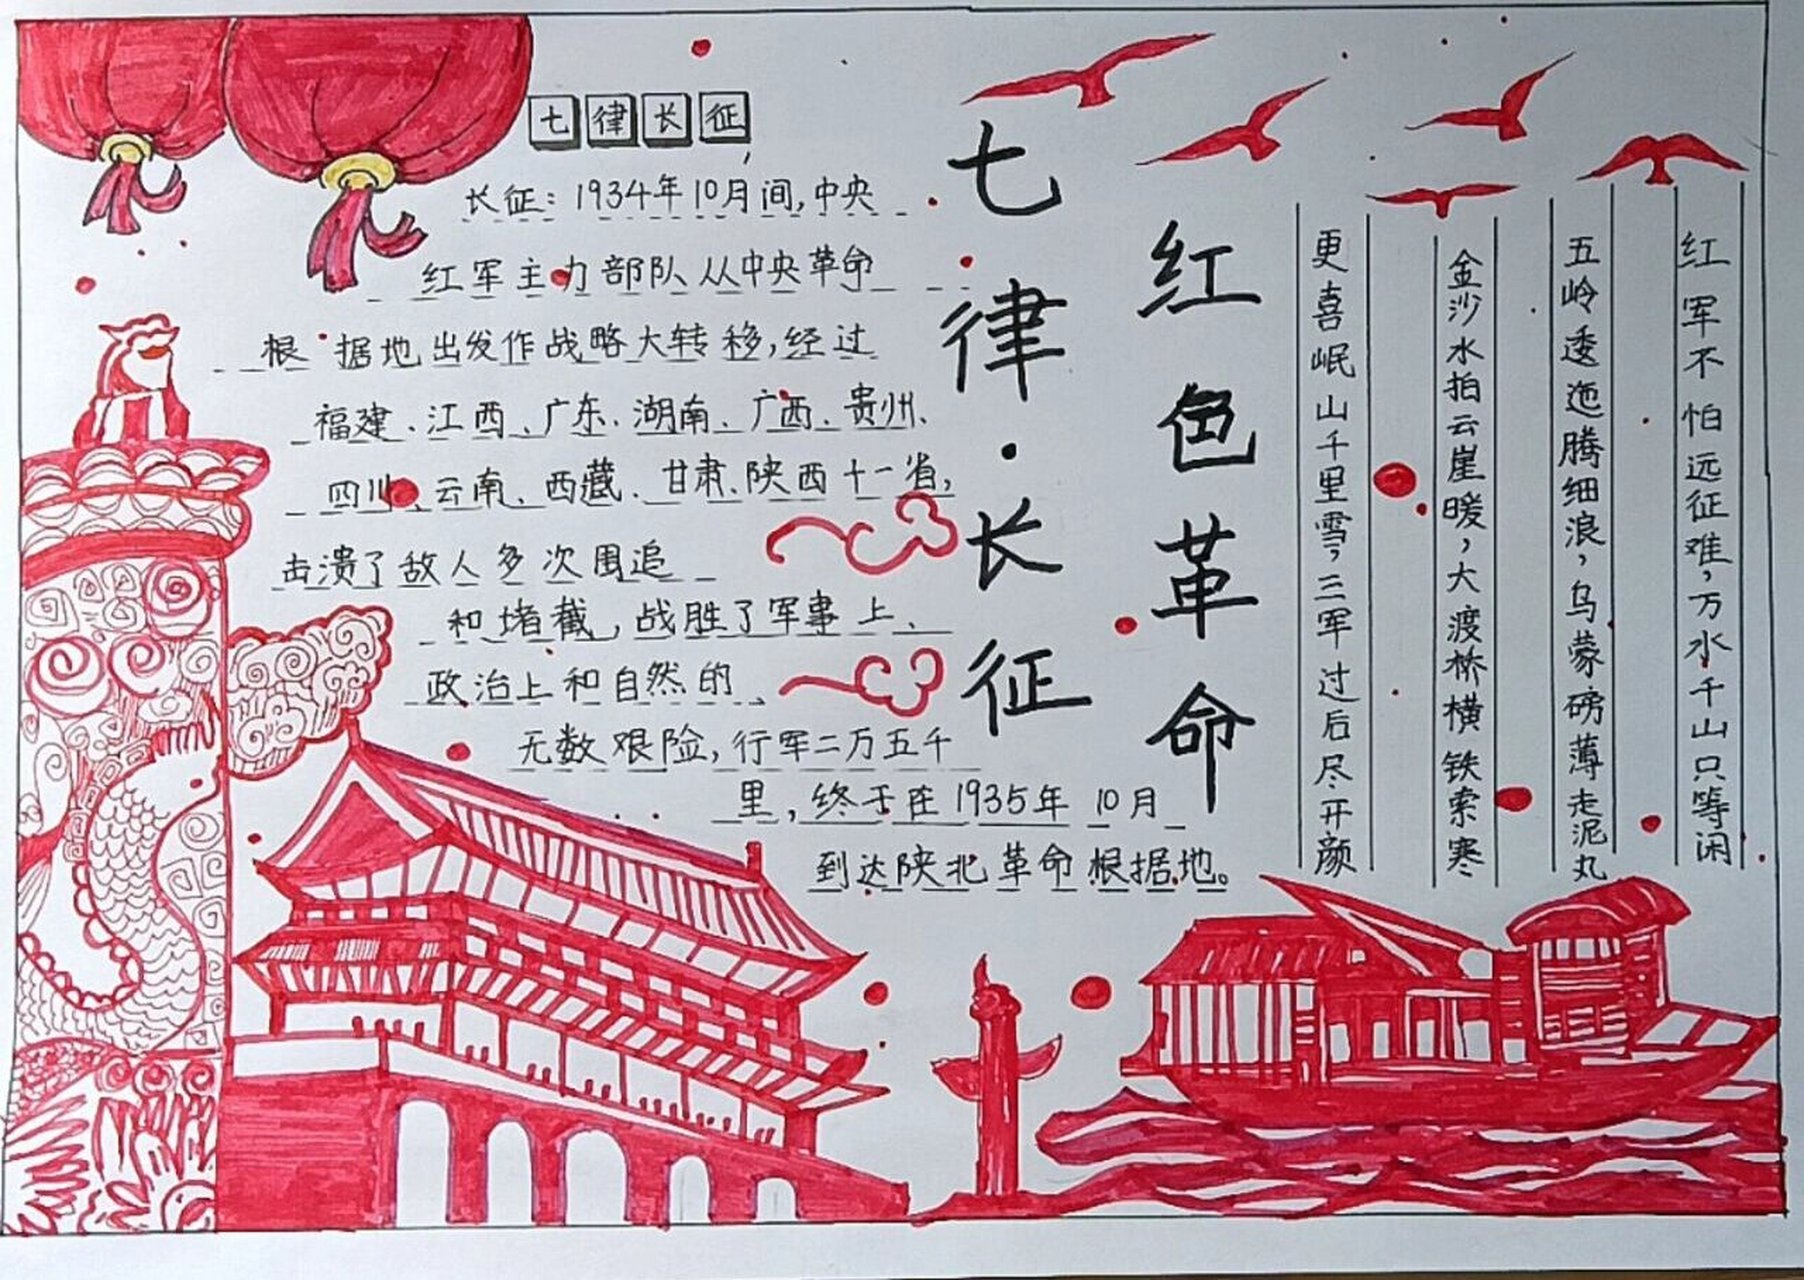 七律长征
长征：1934年10月间，中央
红军主力部队从中央革命
根据地出发作战略大转移，经过
福建、江西、广东、湖南、广西、贵州、
四川、云南、西藏、甘肃、陕西十一省，
击溃了敌人多次围追
和堵截，战胜了军事上、
政治上和自然的
无数艰险，行军二万五千
里，终于在1935年10月
到达陕北革命根据地。
七律·长征
红色革命
红军不怕远征难，万水千山只等闲
五岭逶迤腾细浪，乌蒙磅薄走泥丸
金沙水拍云崖暖，大渡桥横铁索寒
更喜岷山千里雪，三军过后尽开颜